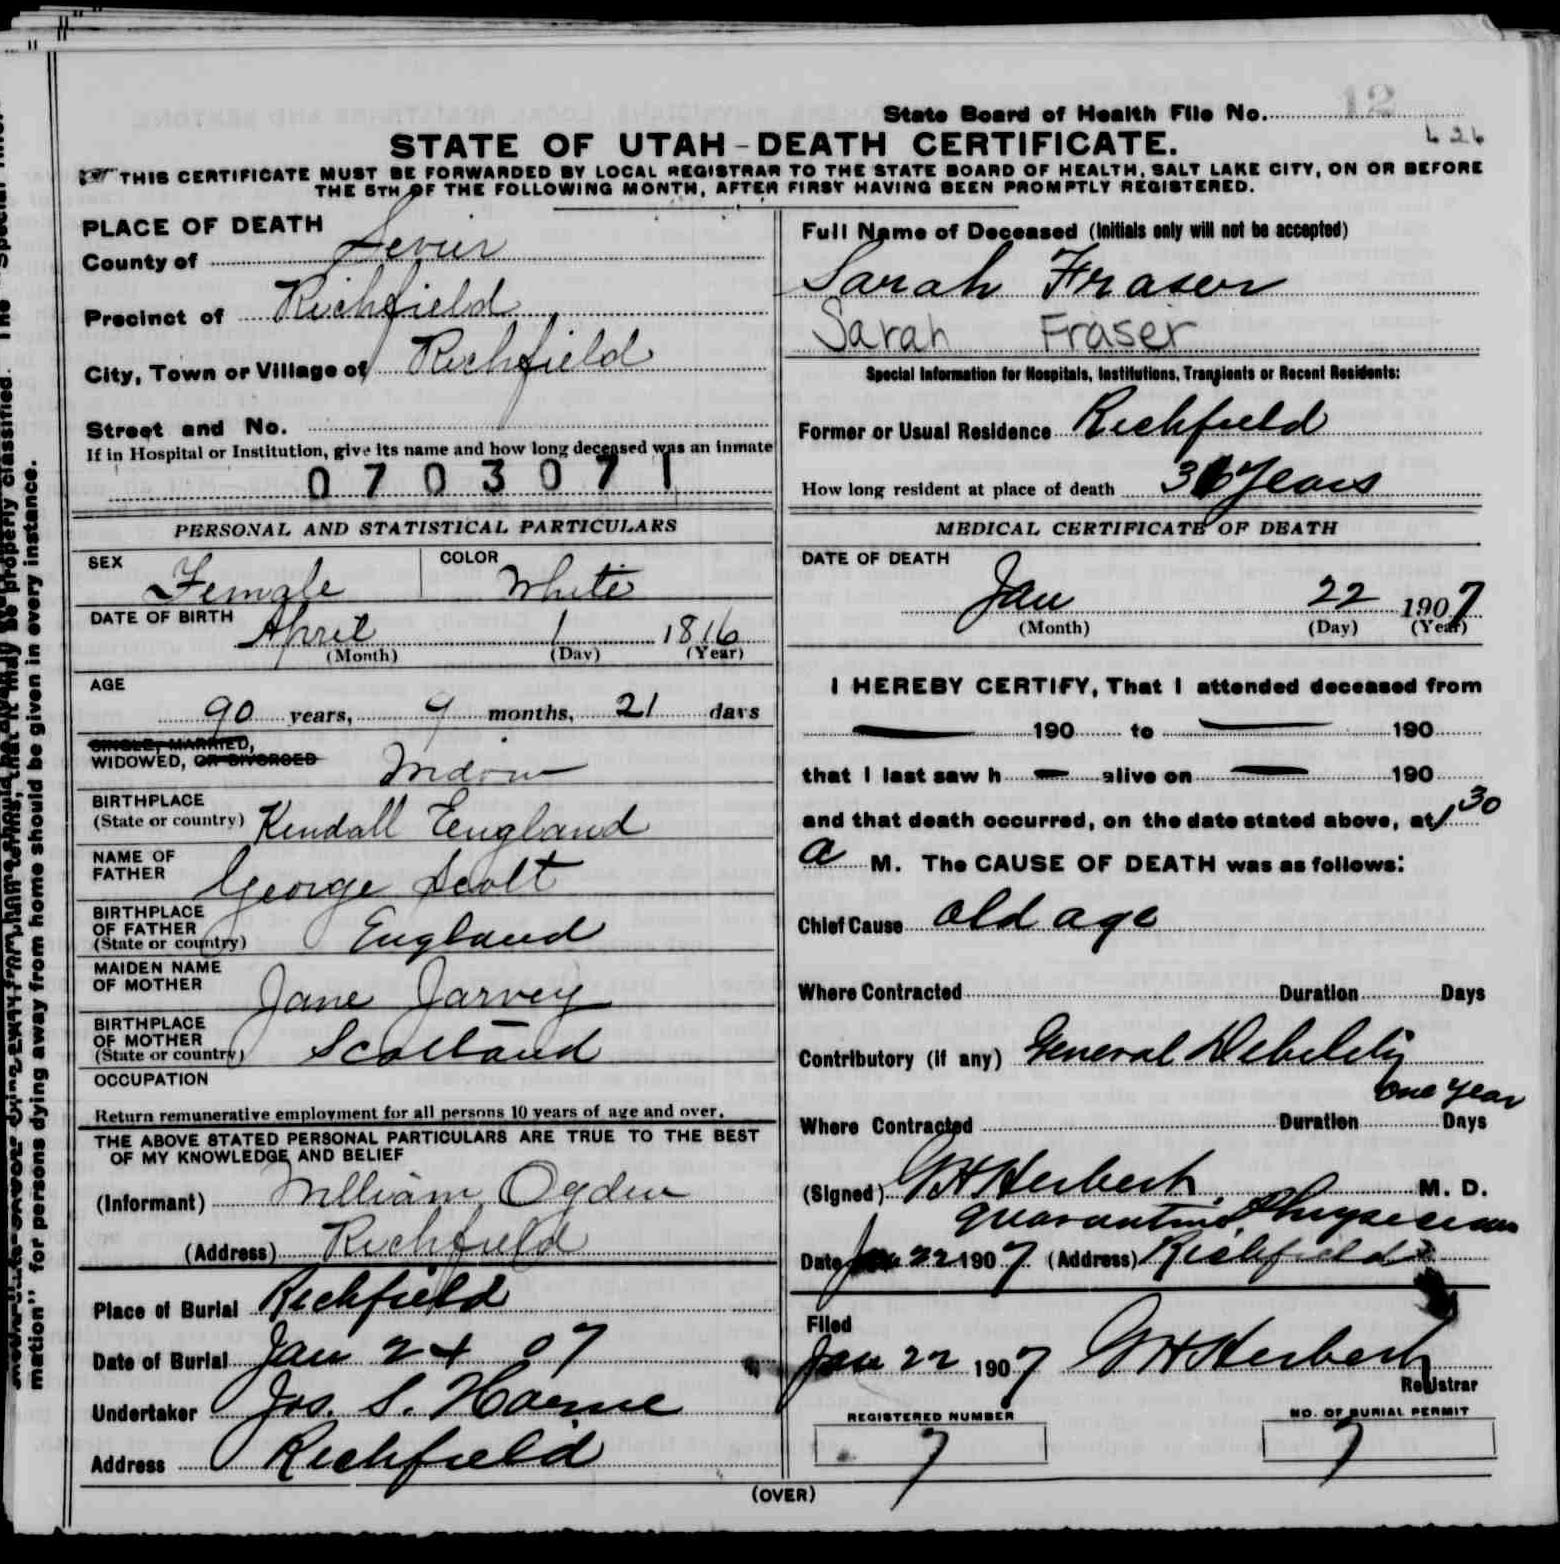 State Board of Health File No. 12
STATE OF UTAH - DEATH CERTIFICATE.
THIS CERTIFICATE MUST BE FORWARDED BY LOCAL REGISTRAR TO THE STATE BOARD OF HEALTH, SALT LAKE CITY, ON OR BEFORE
THE 5TH OF THE FOLLOWING MONTH, AFTER FIRST HAVING BEEN PROMPTLY REGISTERED.
PLACE OF DEATH
County of Sevier
Precinct of Richfield
City, Town or Village of Richfield
Street and No.
If in Hospital or Institution, give its name and how long deceased was an inmate
0703071
PERSONAL AND STATISTICAL PARTICULARS
SEX Female COLOR White
DATE OF BIRTH April 1 1816
(Month) (Day) (Year)
AGE
90 years, 9 months, 21 days
SINGLE, MARRIED,
WIDOWED, OR DIVORCED Widow
BIRTHPLACE
(State or country) Kendall England
NAME OF
FATHER George Scott
BIRTHPLACE
OF FATHER
(State or country) England
MAIDEN NAME
OF MOTHER Jane Jarvey
BIRTHPLACE
OF MOTHER
(State or country) Scotland
OCCUPATION
Return remunerative employment for all persons 10 years of age and over.
THE ABOVE STATED PERSONAL PARTICULARS ARE TRUE TO THE BEST
OF MY KNOWLEDGE AND BELIEF
(Informant) William Ogden
(Address) Richfield
Place of Burial Richfield
Date of Burial Jan 24 07
Undertaker Jos. S. Horne
Address Richfield
Full Name of Deceased (Initials only will not be accepted)
Sarah Fraser
Sarah Fraser
Special Information for Hospitals, Institutions, Transients or Recent Residents:
Former or Usual Residence Richfield
How long resident at place of death 36 Years
MEDICAL CERTIFICATE OF DEATH
DATE OF DEATH
Jan 22 1907
(Month) (Day) (Year)
I HEREBY CERTIFY, That I attended deceased from
190 to 190
that I last saw h alive on 190
and that death occurred, on the date stated above, at 1 30
a M. The CAUSE OF DEATH was as follows:
Chief Cause old age
Where Contracted Duration Days
Contributory (if any) General Debility
one year
Where Contracted Duration Days
(Signed) GH Herbert M. D.
quarantine Physician
Date Jan 22 1907 (Address) Richfield
Filed
Jan 22 1907 GH Herbert
Registrar
REGISTERED NUMBER
7
NO. OF BURIAL PERMIT
7
(OVER)
mation" for persons dying away from home should be given in every instance.